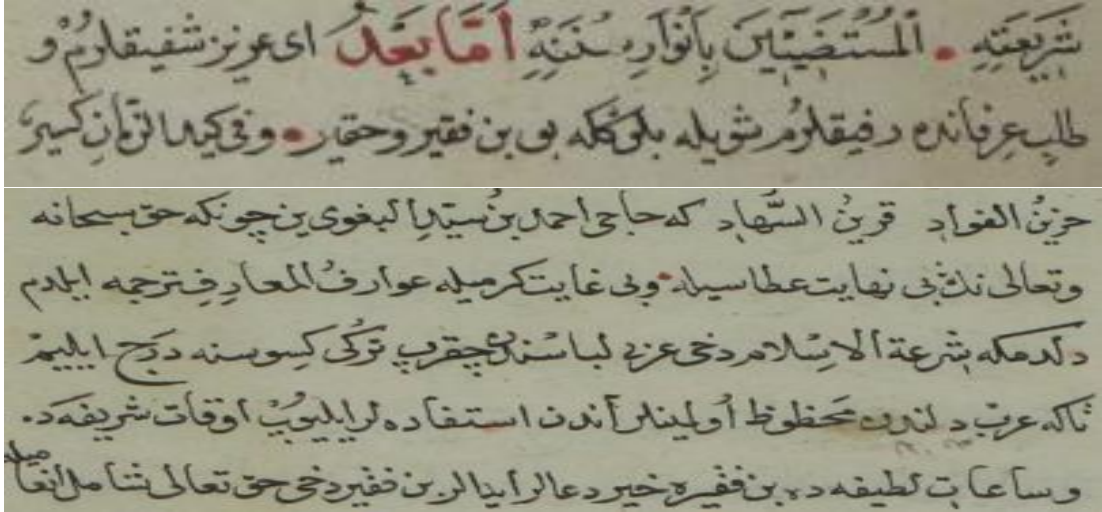 شَرِيعَتِهِ . اَلْمُسْتَضِيئِينَ بِاَنْوَارِ سُنَنِهِ اَمَّا بَعْدُ اى عزيز شفيقلرُمْ و
طلبِ عِرفانده رفيقلرُم شويله بلوڭكه بو بن فقير وحقير . وفى كيد الزمانِ كسير
حزينُ الفواد قرينُ السُّهاد كه حاجى احمد بنُ سيّدِ البغوى ين چونكه حق سبحانه
وتعالى نڭ بى نهايت عطاسيله . وبى غايت كرميله عوارفُ المعارفِ ترجمه ايلدم
دلدمكه شرعة الاسِلام دخى عربى لباسندن چقرب تركى كسوسنه دَرج ايلييم
تاكه عرب دلندن محظوظ اُولمينلر أندن استفاده لر ايليوبْ اوقات شريفه ده .
وساعات لطيفه ده بن فقيره خير دعالر ايدالر بن فقير دخى حق تعالى